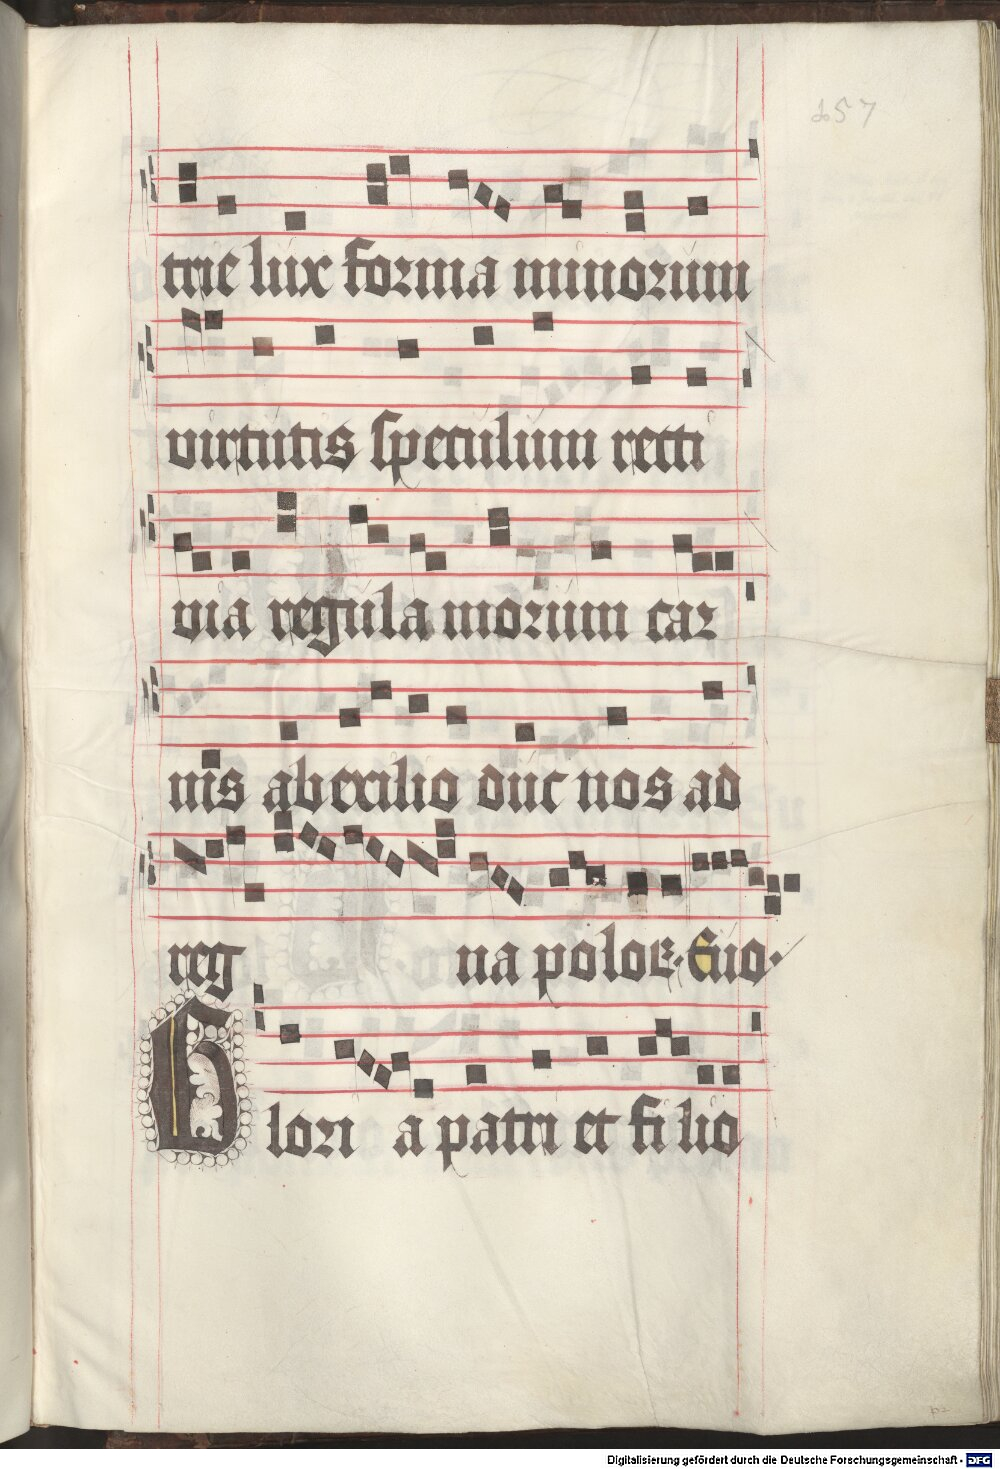 257
trie lux forma minorum
virtutis speculum recti
via regula morum car
nis ab exilio duc nos ad
reg na polor. Euo.
Glori a patri et filio
Digitalisierung gefördert durch die Deutsche Forschungsgemeinschaft - DFG